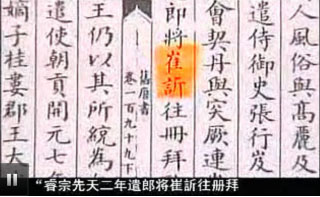 人風俗與高麗及
遣侍御史張行岌
會契丹與突厥連
即將崔訢往冊拜
舊唐書 卷一百九十九下
王仍以其所統為
遣使朝貢開元七
嫡子桂婁郡王大
“睿宗先天二年遣郎将崔訢往册拜